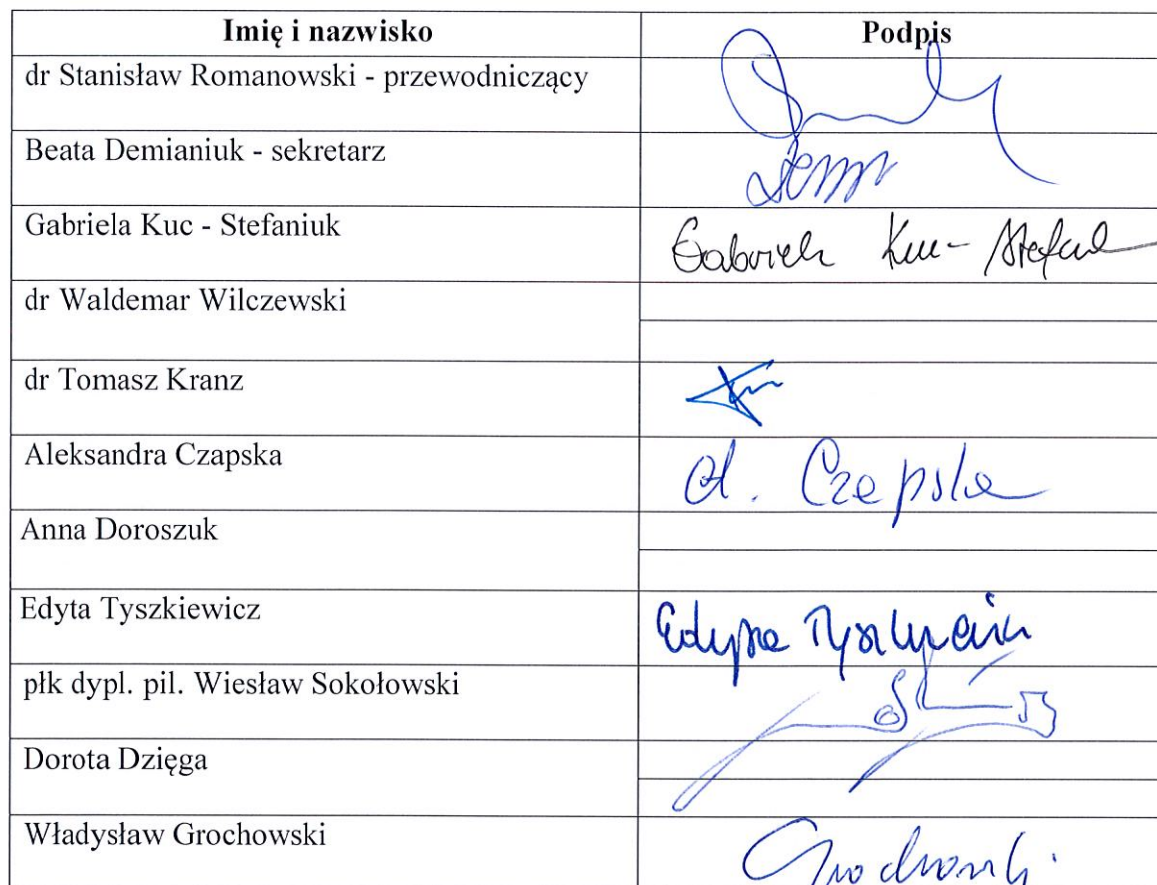 Imię i nazwisko Podpis
dr Stanisław Romanowski - przewodniczący
Beata Demianiuk - sekretarz
Gabriela Kuc - Stefaniuk Gabriela Kuc-
dr Waldemar Wilczewski
dr Tomasz Kranz
Aleksandra Czapska A. Czapska
Anna Doroszuk
Edyta Tyszkiewicz Edyta Tyszkiewicz
płk dypl. pil. Wiesław Sokołowski
Dorota Dzięga
Władysław Grochowski Grochowski